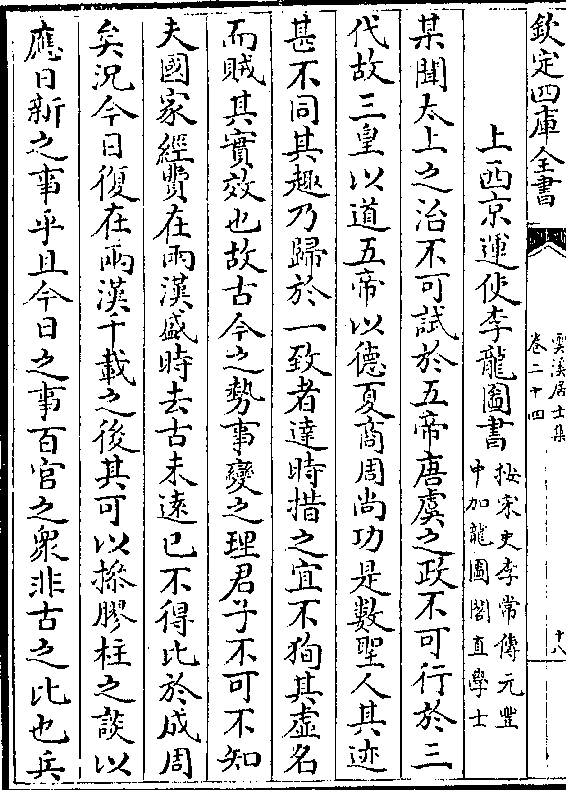 欽定四庫全書
雲溪居士集
卷二十四
十八
上西京運使李龍圖書
按宋史李常傳元豐
中加龍圖閣直學士
某聞太上之治不可試於五帝唐虞之政不可行於三
代故三皇以道五帝以德夏商周尚功是數聖人其迹
甚不同其趣乃歸於一致者達時措之宜不狥其虛名
而賊其實效也故古今之勢事變之理君子不可不知
夫國家經費在兩漢盛時去古未遠已不得比於成周
矣況今日復在兩漢千載之後其可以摻膠柱之談以
應日新之事乎且今日之事百官之衆非古之比也兵